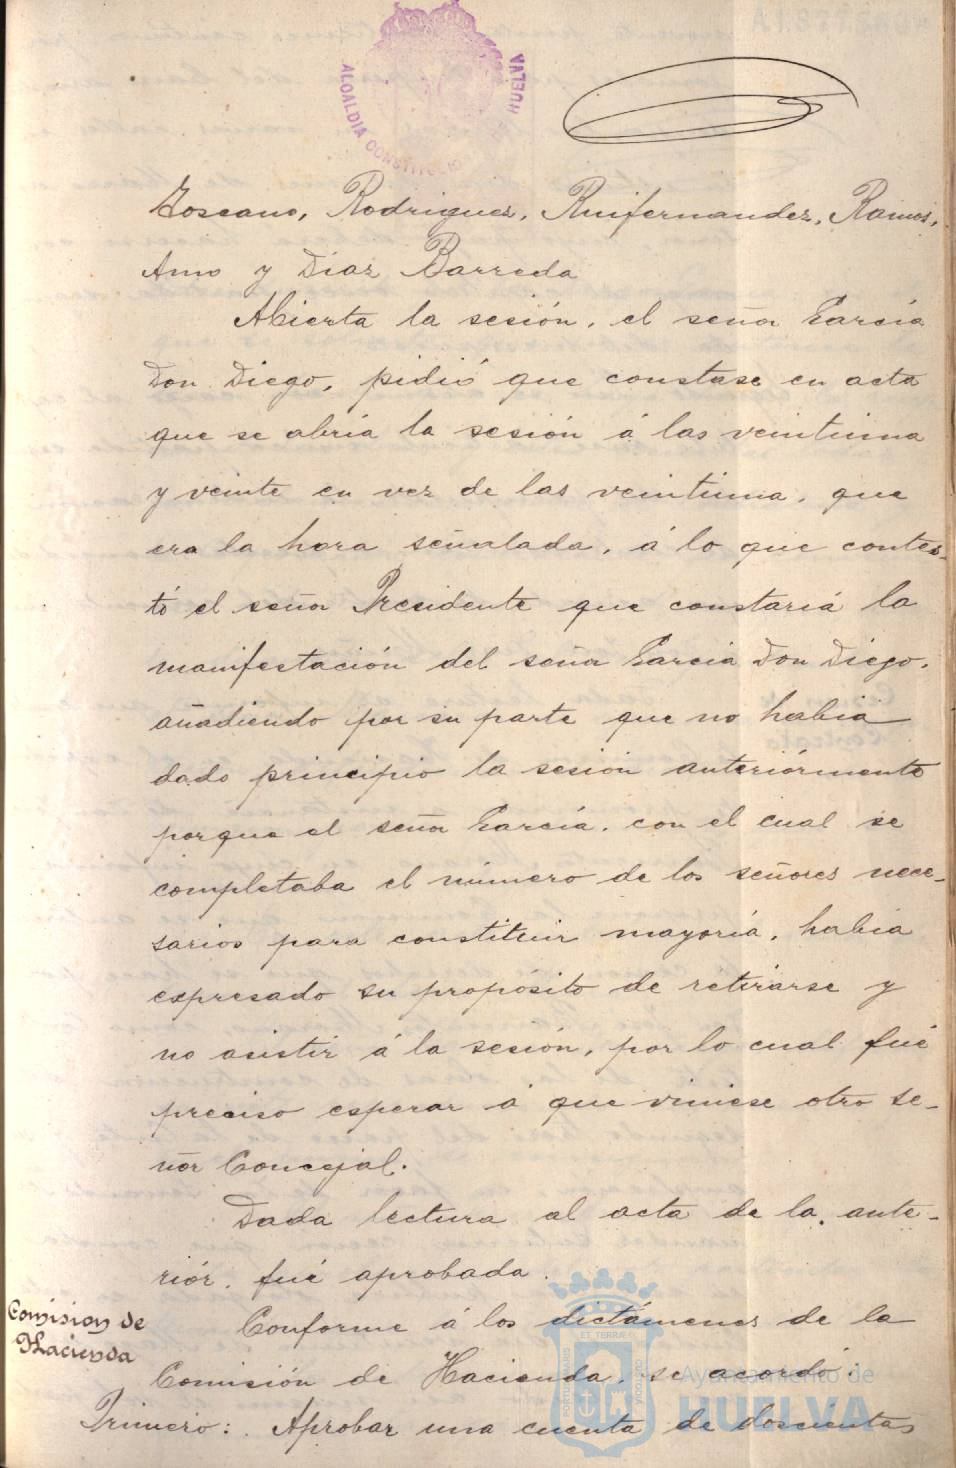 ALCALDIA CONSTITUCIO
HUELVA
Toscano, Rodriguez, Ruifernandez, Ramos,
Amo y Diaz Barreda
Abierta la sesión, el señor García
Don Diego, pidió que constase en acta
que se abria la sesión á las veintiuna
y veinte en vez de las veintiuna, que
era la hora señalada, á lo que contes-
tó el señor Presidente que constariá la
manifestación del señor Garcia Don Diego,
añadiendo por su parte que no habia
dado principio la sesión anteriórmente
porque el señor García, con el cual se
completaba el número de los señores nece-
sarios para constituir mayoría, habia
expresado su propósito de retirarse y
no asistir á la sesión, por lo cual fué
preciso esperar á que viniese otro se-
ñor Concejal.
Dada lectura al acta de la ante-
riór, fué aprobada.
Comision de
Hacienda
Conforme á los dictámenes de la
Comisión de Hacienda, se acordó:
Primero: Aprobar una cuenta de doscientas
PORTUS MARIS
ET TERRÆ
CUSTODIA
Ayuntamiento de
HUELVA